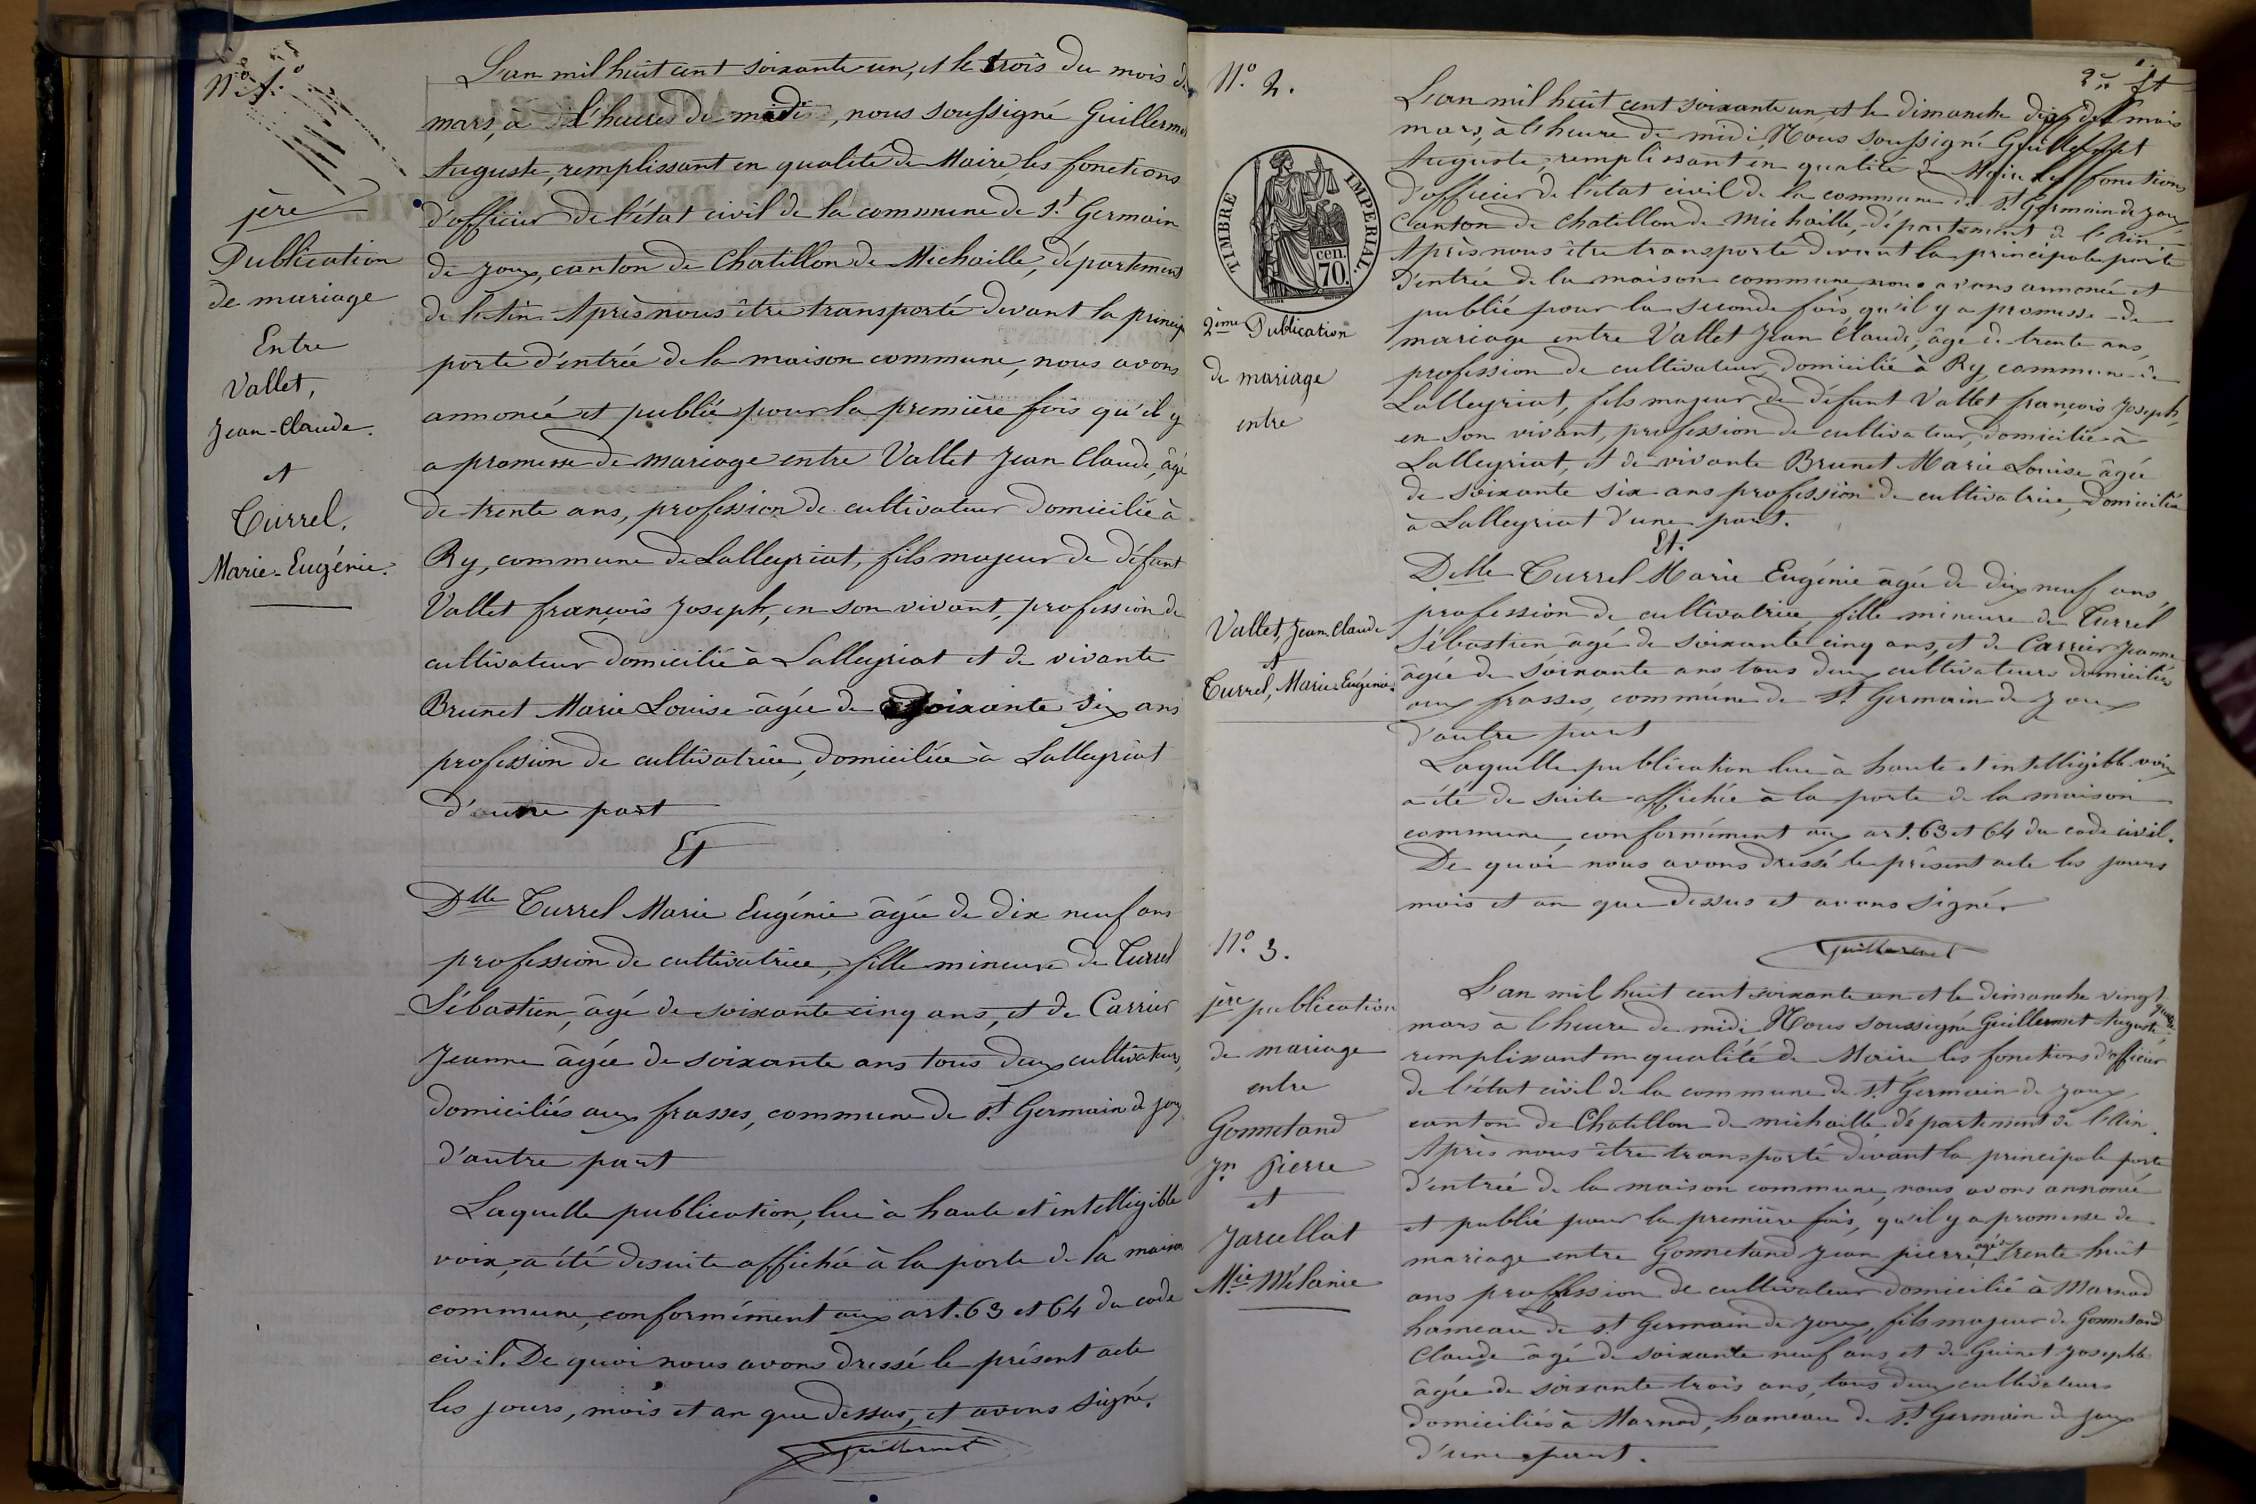 N.º 1.º
1ère
Publication
de mariage
Entre
Vallet,
Jean-Claude.
et
Turrel,
Marie-Eugénie.
L'an mil huit cent soixante un, et le trois du mois de
mars, à l'heure de midi, nous soussigné Guillermet
Auguste, remplissant en qualité de Maire, les fonctions
d'officier de l'état civil de la commune de St Germain
de joux, canton de Chatillon de Michaille, département
de l'Ain. Après nous être transporté devant la principe
porte d'entrée de la maison commune, nous avons
annoncé et publié pour la première fois qu'il y
a promesse de mariage entre Vallet Jean Claude, âgé
de trente ans, profession de cultivateur domicilié à
Ry, commune de Lalleyriat, fils majeur de défunt
Vallet françois Joseph, en son vivant, profession de
cultivateur domicilié à Lalleyriat et de vivante
Brunet Marie Louise âgée de soixante six ans
profession de cultivatrice, domiciliée à Lalleyriat
d'une part
Et
Dlle Turrel Marie Eugénie âgée de dix neuf ans
profession de cultivatrice, fille mineure de Turrel
Sébastien, âgé de soixante cinq ans, et de Carrier
Jeanne âgée de soixante ans tous deux cultivateurs,
domiciliés aux frasses, commune de St Germain de joux
d'autre part
Laquelle publication, lue à haute et intelligible
voix, a été desuite affiché à la porte de la maison
commune, conformément aux art. 63 et 64 du code
civil. De quoi nous avons dressé le présent acte
les jours, mois et an que dessus, et avons signé.
Guillermet
N.º 2.
TIMBRE IMPERIAL.
cen.
70.
2ème Publication
de mariage
entre
Vallet, Jean Claude
et
Turrel, Marie-Eugénie.
L'an mil huit cent soixante un et le dimanche dix du mois
mars, à l'heure de midi, Nous soussigné Guillermet
Auguste, remplissant en qualité de Maire les fonctions
d'officier de l'état civil de la commune de St Germain de joux
Canton de Chatillon de Michaille, département de l'Ain.
Après nous être transporté devant la principale porte
d'entrée de la maison commune, nous avons annoncé et
publié pour la seconde fois, qu'il y a promesse de
mariage entre Vallet Jean Claude, âgé de trente ans,
profession de cultivateur, domicilié à Ry, commune de
Lalleyriat, fils majeur de défunt Vallet françois Joseph,
en son vivant, profession de cultivateur, domicilié à
Lalleyriat, et de vivante Brunet Marie Louise âgée
de soixante six ans profession de cultivatrice, domiciliée
à Lalleyriat d'une part.
Et.
Delle Turrel Marie Eugénie âgée de dix neuf ans,
profession de cultivatrice, fille mineure de Turrel
Sébastien âgé de soixante cinq ans, et de Carrier Jeanne
âgée de soixante ans tous deux cultivateurs domiciliés
aux frasses, commune de St Germain de Joux
d'autre part
Laquelle publication lue à haute et intelligible voix
a été de suite affichée à la porte de la maison
commune conformément aux art. 63 et 64 du code civil.
De quoi nous avons dressé le présent acte les jours
mois et an que dessus et avons signé.
Guillermet
N.º 3.
1ère publication
de mariage
entre
Gonnetand
Jn Pierre
et
Jarcellat
Mie Mélanie
L'an mil huit cent soixante un et le dimanche vingt quatre
mars à l'heure de midi Nous soussigné Guillermet Auguste,
remplissant en qualité de Maire, les fonctions d'officier
de l'état civil de la commune de St Germain de joux
canton de Chatillon de michaille, département de l'Ain.
Après nous être transporté devant la principale porte
d'entrée de la maison commune, nous avons annoncé
et publié pour la première fois, qu'il y a promesse de
mariage entre Gonnetand Jean pierre, âgé de trente huit
ans profession de cultivateur domicilié à Marnod
hameau de St Germain de Joux, fils majeur de Gonnetand
Claude âgé de soixante neuf ans et de Guinet Josephte
âgée de soixante trois ans, tous deux cultivateurs
domiciliés à Marnod, hameau de St Germain de joux
d'une part.